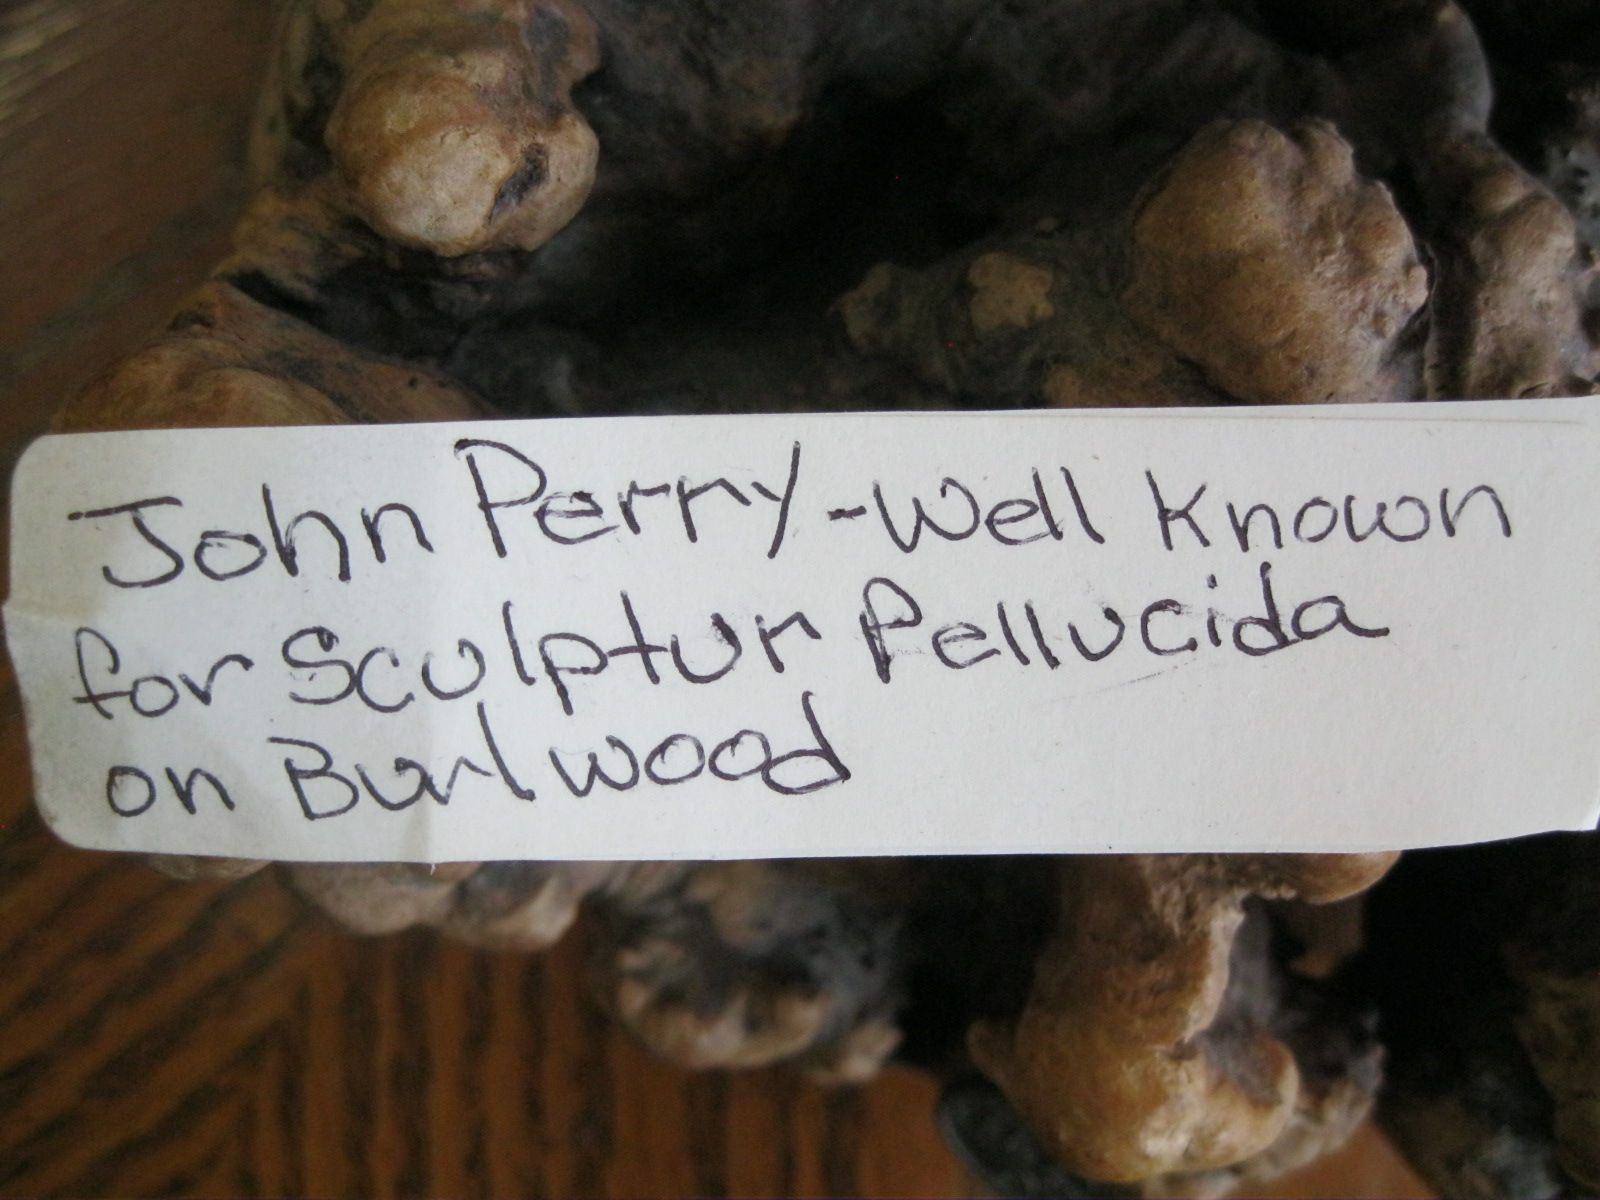 John Perry - Well Known
for Sculptur Pellucida
on Burlwood